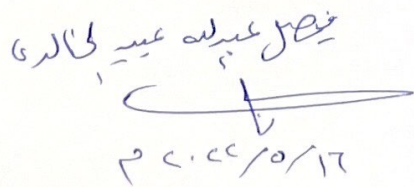 فيصل عبدالله عبيد الخالدي
٢٠٢٢/٥/١٦ م